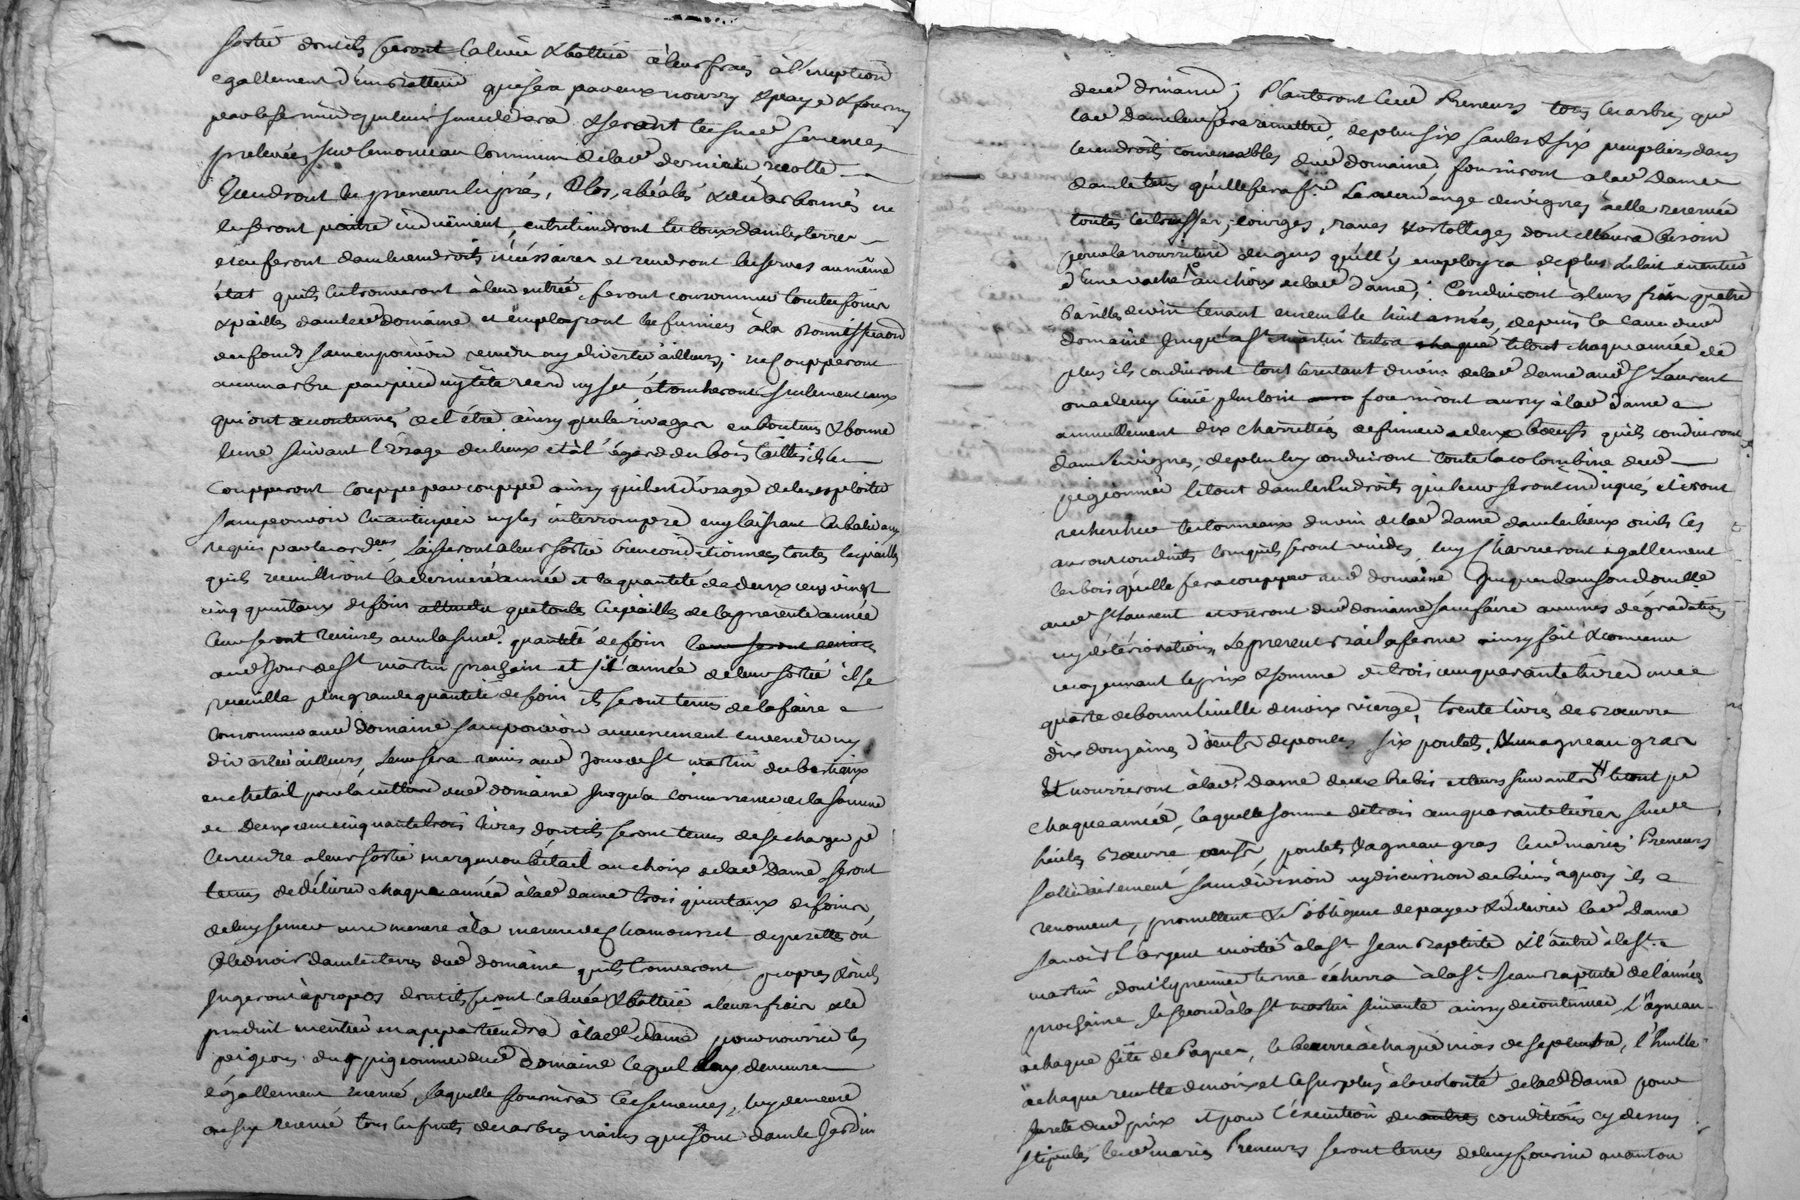 sortie dont ils seront la levée & battue à leurs frais à l'exeption
egallement d'un batteur qui sera par eux nourry & payé & fourny
par le fermier qui leur succedera & seront les susd. semences
prelevées sur le monceau commun de lad. derniere recolte
Tiendront les preneurs les prés, clos, & en bonnes
feront paitre indûement, entretiendront les dans les terres
et en feront dans les endroits nécéssaires et rendront les serves au même
état qu'ils les trouveront à leur entrée, feront consommer tous les foins
& pailles dans led. domaine et employeront les fumiers à la bonnification
des fonds sans en pouvoir vendre ny divertir ailleurs; ne coupperont
aucun arbre par pied ny tête ny sec étroncheront seulement ceux
qui ont accoutumé de l'être ainsy que les rivages en bon tems & bonne
lune suivant l'usage des lieux et à l'égard des bois taillis ils les
coupperont couppe par couppe ainsy qu'il est d'usage de les exploiter
sans pouvoir en anticiper ny les interrompre en y laissant les baliveaux
requis par les ord.ces Laisseront à leur sortie bien conditionnées toutes les pailles
qu'ils receuilliront la derniere année et la quantité de deux cens vingt
cinq quintaux de foin attendu que toutes les pailles de la presente année
leur seront remises avec la susd. quantité de foin leur seront remises
aud. jour de st martin prochain et si l'année de leur sortie il se
receuille plus grande quantité de foin ils seront tenus de la faire
consommer aud. domaine sans pouvoir aucunement en vendre ny
divertir ailleurs, Leur sera remis aud. jour de st martin des bestiaux
en chetail pour la culture dud. domaine jusqu'a concurrence de la somme
de Deux cens cinquante trois livres dont ils seront tenus de se charger pr
le rendre à leur sortie en argent ou bétail au choix de lad. Dame, seront
tenus de délivrer chaque année à lad. dame trois quintaux de foin
de luy semer une mesure à la mesure de chamousset de pezettes ou
bled noir dans les terres dud. domaine qu'ils trouveront propres & qu'ils
jugeront à propos dont ils feront la levée & battue à leurs frais et le
produit entier en appartiendra à lad. Dame pour nourrir les
peigeons du pigeonnier dud. Domaine lequel luy demeure
égallement reservé, laquelle fournira les semences, luy demeure
aussy reservé tous les fruits des arbres nains qui sont dans le Jardin
dud. domaine; Planteront lesd. Preneurs tous les arbres que
lad. dame leur fera remettre, de plus six saules & six peupliers dans
les endroits convenables dud. domaine, fourniront à lad. Dame
dans le tems qu'elle fera f.re la vendange des vignes à elle reservée
toutes les courges, raves & ortollages dont elle aura besoin
pour la nourriture des gens qu'elle y employra de plus le lait en entier
d'une vache au choix de lad. dame; Conduiront à leurs frais quatre
barilles de vin tenant ensemble huit anées, depuis la cave dud.
domaine jusqu'à st martin le tout chaque année de
plus ils conduiront tout le restant du vin de lad. Dame aud. St Laurent
ou à demy lieüe plus loin fourniront aussy à lad. Dame
annuellement dix charrettées de fumier à deux bœufs qu'ils conduiront
dans les vignes, de plus luy conduiront toute la colombine dud.
pigeonnier le tout dans les Endroits qui leur seront indiqués et iront
rechercher les tonneaux du vin de lad. dame dans les lieux où ils les
auront conduits lorsqu'ils seront vuides, luy charrieront egallement
les bois qu'elle fera coupper aud. domaine jusques dans son domicille
aud. St Laurent et useront dud. domaine sans faire aucunes dégradations
ny détériorations, Le present bail à ferme ainsy fait & convenu
moyennant le prix & somme de trois cens quarante livres une
quarte de bonne huille de noix vierge, trente livres de beurre
dix douzaines d'œufs de poules, six poulets & un agneau gras
Et nourriront à lad. Dame deux brebis et leurs suivants le tout pr
chaque année, laquelle somme de trois cens quarante livres susd.
huile, beurre œufs, poulets & agneau gras lesd. mariés Preneurs
sollidairement sans division ny discussion de biens à quoy ils
renoncent, promettent & s'obligent de payer & délivrer lad. Dame
savoir l'argent moitié à la St Jean Baptiste & l'autre à la St
martin dont le premier terme écherra à la St Jean Baptiste de l'année
prochaine le second à la St martin suivante ainsy de continuer L'agneau
à chaque fête de Pâques, le beurre à chaque mois de septembre, l'huille
à chaque recolte de noix et le surplus à la volonté de lad. Dame pour
sureté dud. prix et pour l'exécution des autres conditions cy dessus
stipulés lesd. mariés Preneurs seront tenus de luy fournir